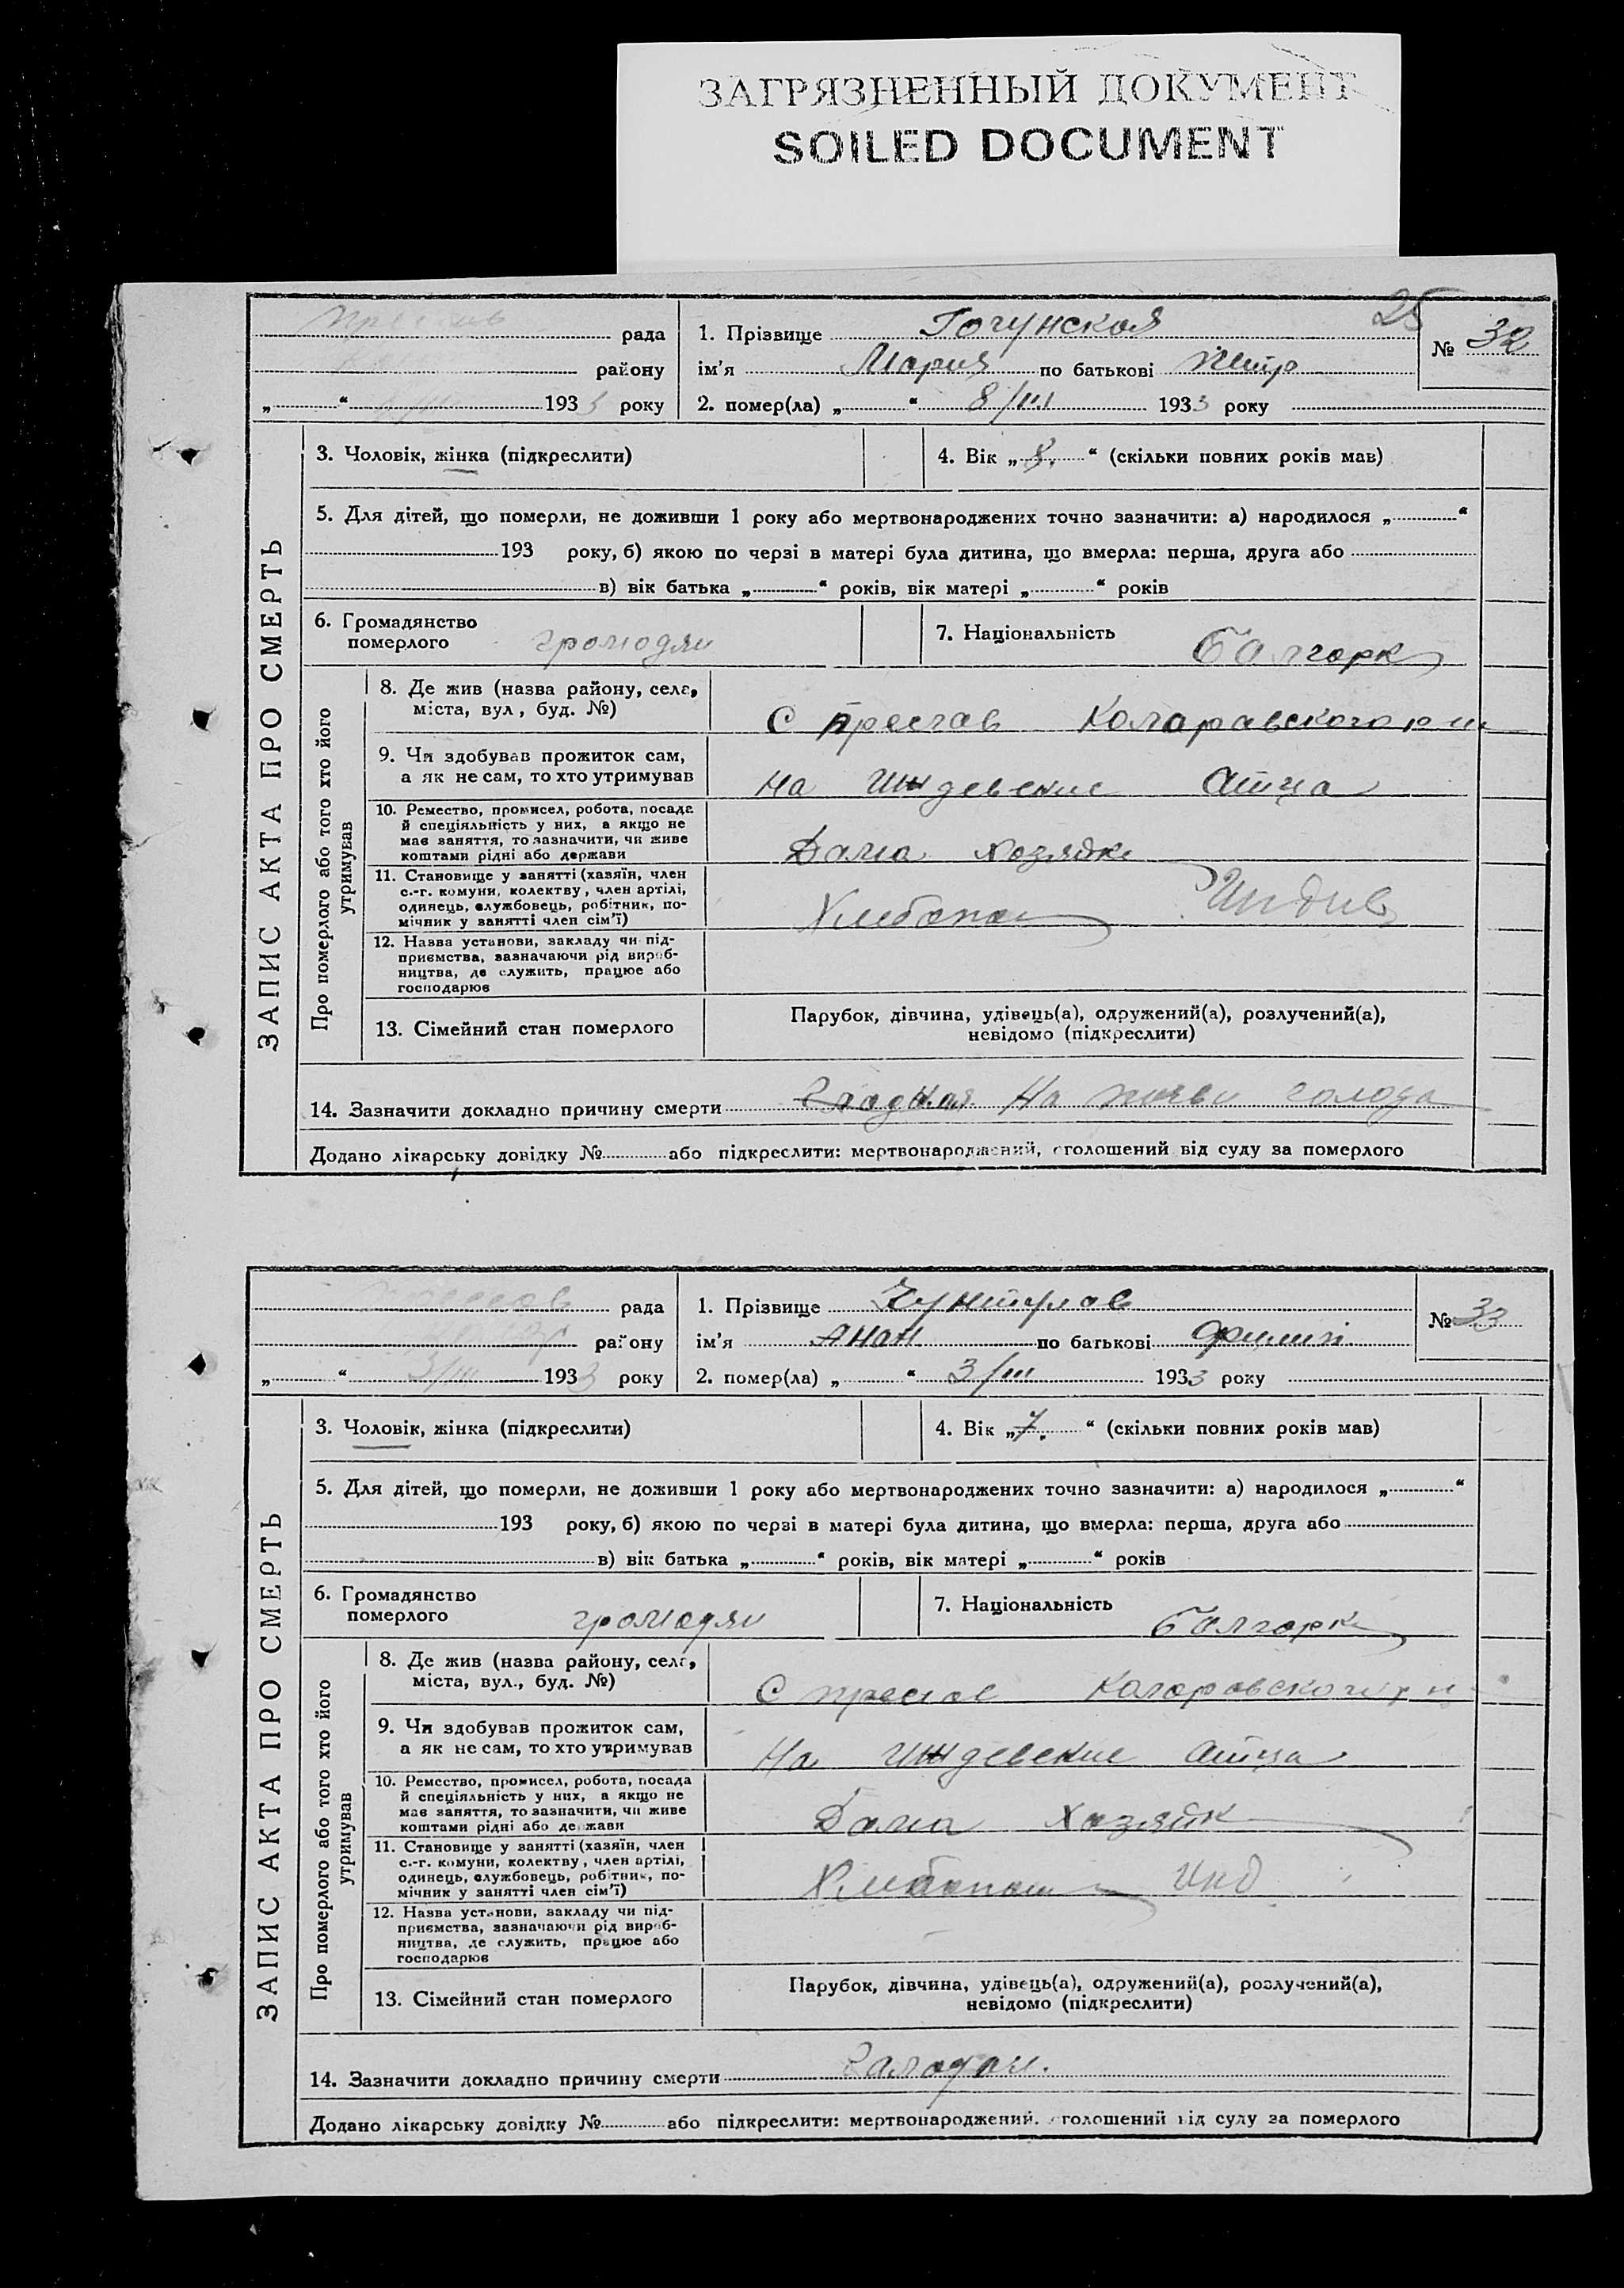 ЗАГРЯЗНЕННЫЙ ДОКУМЕНТ
SOILED DOCUMENT
25
рада
району
„ “ 1933 року
1. Прізвище Гогунская
ім'я Мария по батькові Петр
2. помер(ла) „ “ 8/III 1933 року
№ 32
ЗАПИС АКТА ПРО СМЕРТЬ
3. Чоловік, жінка (підкреслити)
4. Вік „ 8. “ (скільки повних років мав)
5. Для дітей, що померли, не доживши 1 року або мертвонароджених точно зазначити: а) народилося „ “
193 року, б) якою по черзі в матері була дитина, що вмерла: перша, друга або
в) вік батька „ “ років, вік матері „ “ років
6. Громадянство
померлого громодян
7. Національність Балгорк
Про померлого або того хто його
утримував
8. Де жив (назва району, села,
міста, вул, буд. №) С преслав Коларавского р
9. Чи здобував прожиток сам,
а як не сам, то хто утримував На иждевение атца
10. Ремество, промисел, робота, посада
й спеціяльність у них, а якщо не
має заняття, то зазначити, чи живе
коштами рідні або держави Дама хозяйк
11. Становище у занятті (хазяїн, член
с.-г. комуни, колектву, член артілі,
одинець, службовець, робітник, по-
мічник у занятті член сім'ї) Хлебопаш Индив
12. Назва установи, закладу чи під-
приємства, зазначаючи рід вироб-
ництва, де служить, працює або
господарює
13. Сімейний стан померлого
Парубок, дівчина, удівець(а), одружений(а), розлучений(а),
невідомо (підкреслити)
14. Зазначити докладно причину смерти На почви голода
Додано лікарську довідку № або підкреслити: мертвонароджений, оголошений від суду за померлого
рада
району
„ “ 3/III 1933 року
1. Прізвище Чунтулов
ім'я Анан по батькові Филип
2. помер(ла) „ “ 3/III 1933 року
№ 33
ЗАПИС АКТА ПРО СМЕРТЬ
3. Чоловік, жінка (підкреслити)
4. Вік „ 7. “ (скільки повних років мав)
5. Для дітей, що померли, не доживши 1 року або мертвонароджених точно зазначити: а) народилося „ “
193 року, б) якою по черзі в матері була дитина, що вмерла: перша, друга або
в) вік батька „ “ років, вік матері „ “ років
6. Громадянство
померлого громодян
7. Національність Балгорк
Про померлого або того хто його
утримував
8. Де жив (назва району, села,
міста, вул., буд. №) С преслав Коларовского р н
9. Чи здобував прожиток сам,
а як не сам, то хто утримував На иждевение атца
10. Ремество, промисел, робота, посада
й спеціяльність у них, а якщо не
має заняття, то зазначити, чи живе
коштами рідні або держави Дама Хазяйк
11. Становище у занятті (хазяїн, член
с.-г. комуни, колектву, член артілі,
одинець, службовець, робітник, по-
мічник у занятті член сім'ї) Хлебопаш Инд
12. Назва установи, закладу чи під-
приємства, зазначаючи рід вироб-
ництва, де служить, працює або
господарює
13. Сімейний стан померлого
Парубок, дівчина, удівець(а), одружений(а), розлучений(а),
невідомо (підкреслити)
14. Зазначити докладно причину смерти Галодам.
Додано лікарську довідку № або підкреслити: мертвонароджений. оголошений від суду за померлого